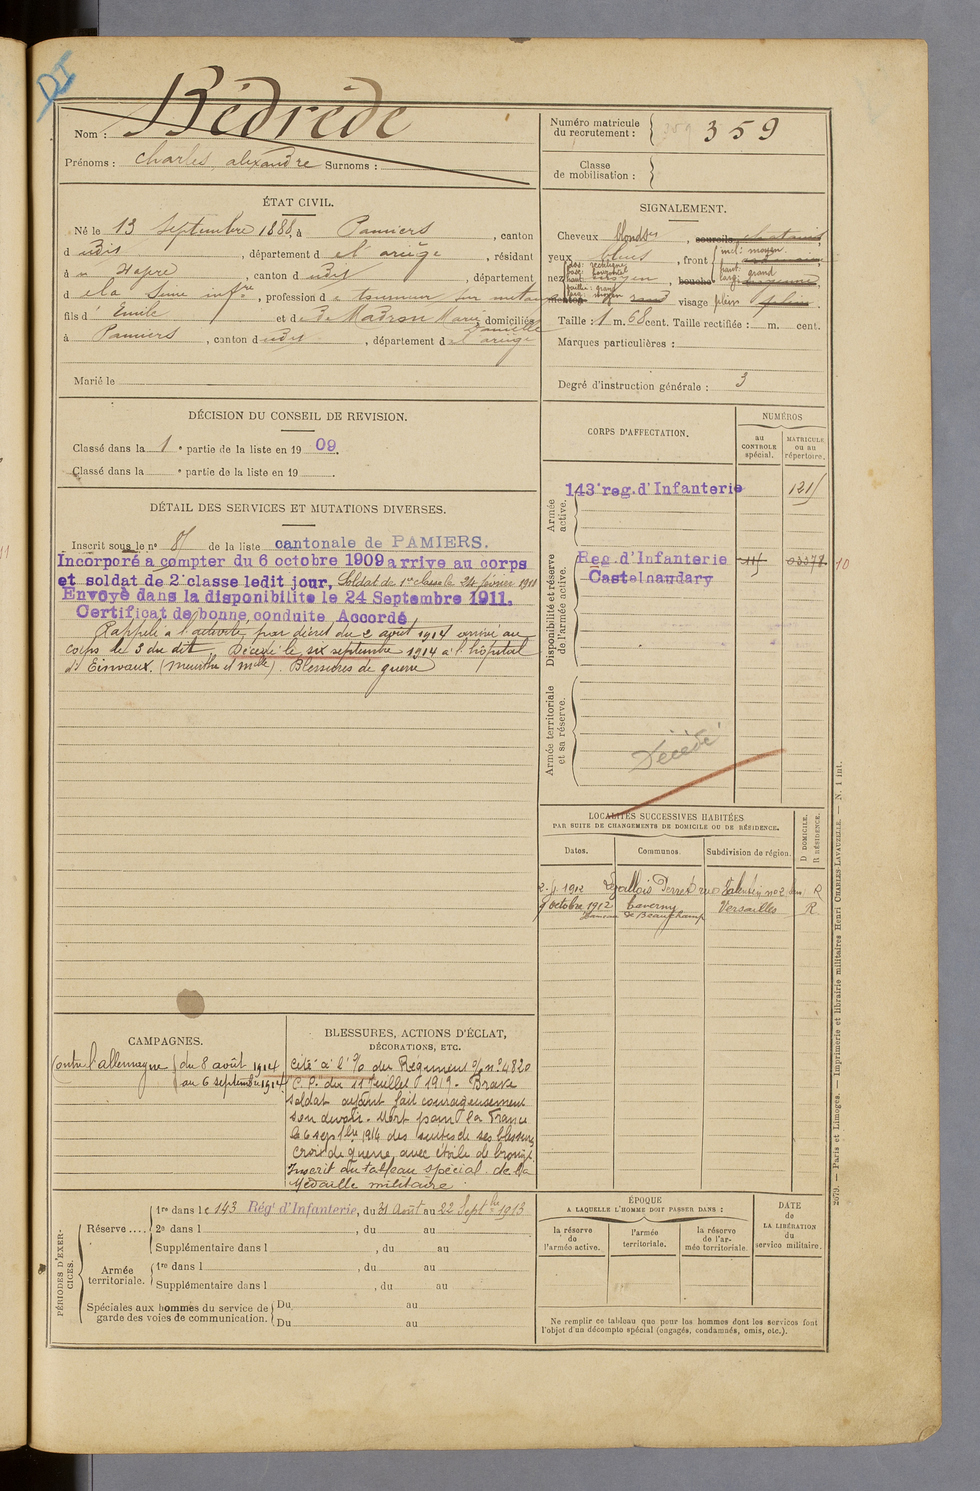 DI
Nom : Bédrède
Prénoms : Charles, alexandre Surnoms :
Numéro matricule
du recrutement : 359 359
Classe
de mobilisation :
ÉTAT CIVIL.
Né le 13 Septembre 1888, à Pamiers, canton
d udit, département d el ariège, résidant
à u Havre, canton d udit, département
d ela Seine infre, profession d e tourneur sur métaux
fils d' Emile et d e de Madron Marie Danielle domiciliés
à Pamiers, canton d udit, département d el ariège
Marié le
SIGNALEMENT.
Cheveux blonds, sourcils chatains
yeux bleus, front incl: moyen
haut: grand
larg:
nez dos: rectiligne
base: horizontal
haut: moyen, bouche moyenne
saillie: grand
larg: moyen
menton rond visage plein plein
Taille : 1 m. 68 cent. Taille rectifiée : m. cent.
Marques particulières :
Degré d'instruction générale : 3
DÉCISION DU CONSEIL DE REVISION.
Classé dans la 1 e partie de la liste en 19 09.
Classé dans la e partie de la liste en 19 .
CORPS D'AFFECTATION.
NUMÉROS
au
CONTROLE
spécial.
MATRICULE
ou au
répertoire.
Armée
active.
143e reg. d'Infanterie
Disponibilité et réserve
de l'armée active.
Reg. d'Infanterie
Castelnaudary
10
Armée territoriale
et sa réserve.
Décédé
DÉTAIL DES SERVICES ET MUTATIONS DIVERSES.
Inscrit sous le no de la liste cantonale de PAMIERS.
Incorporé à compter du 6 octobre 1909 arrive au corps
et soldat de 2e classe ledit jour. Soldat de 1re classe le 24 février 1910
Envoyé dans la disponibilité le 24 Septembre 1911.
Certificat de bonne conduite Accordé
Rappelé à l'activité par décret du 2 août 1914 arrivé au
corps le 3 du dit. Décédé le six septembre 1914 à l'hôpital
d' Einvaux (Meurthe et Mlle). Blessures de guerre
LOCALITÉS SUCCESSIVES HABITÉES
PAR SUITE DE CHANGEMENTS DE DOMICILE OU DE RÉSIDENCE.
Dates.
Communes.
Subdivision de région.
D DOMICILE.
R RÉSIDENCE.
1912 Levallois Perret rue Valentin no 2 R
9 octobre 1912 Taverny Versailles R
Hameau de Beauchamp
CAMPAGNES.
Contre l'allemagne du 8 août 1914
au 6 septembre 1914
BLESSURES, ACTIONS D'ÉCLAT,
DÉCORATIONS, ETC.
Cité à l'O/ du Régiment O/ no 4820
"C.P." du 11 Juillet 1919. Brave
soldat ayant fait courageusement
son devoir. Mort pour la France
le 6 septbre 1914 des suites de ses blessures
Croix de guerre, avec étoile de bronze.
Inscrit au tableau spécial de la
Médaille militaire.
PÉRIODES D'EXER-
CICES.
Réserve ....
1re dans le 143 Régt d'Infanterie, du 31 Août au 22 Septbre 1913
2e dans l , du au
Supplémentaire dans l , du au
Armée
territoriale.
1re dans l , du au
Supplémentaire dans l , du au
Spéciales aux hommes du service de
garde des voies de communication.
Du au
Du au
ÉPOQUE
A LAQUELLE L'HOMME DOIT PASSER DANS :
la réserve
de
l'armée active.
l'armée
territoriale.
la réserve
de l'ar-
mée territoriale.
DATE
de
LA LIBÉRATION
du
service militaire.
Ne remplir ce tableau que pour les hommes dont les services font
l'objet d'un décompte spécial (engagés, condamnés, omis, etc.).
2679. — Paris et Limoges. — Imprimerie et librairie militaires Henri CHARLES-LAVAUZELLE. — N. 1 int.